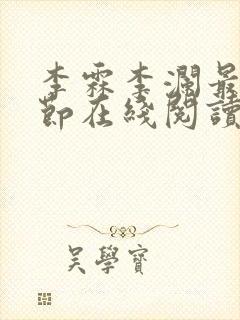 李霖李瀾最
節在綫閱讀
吳學寶